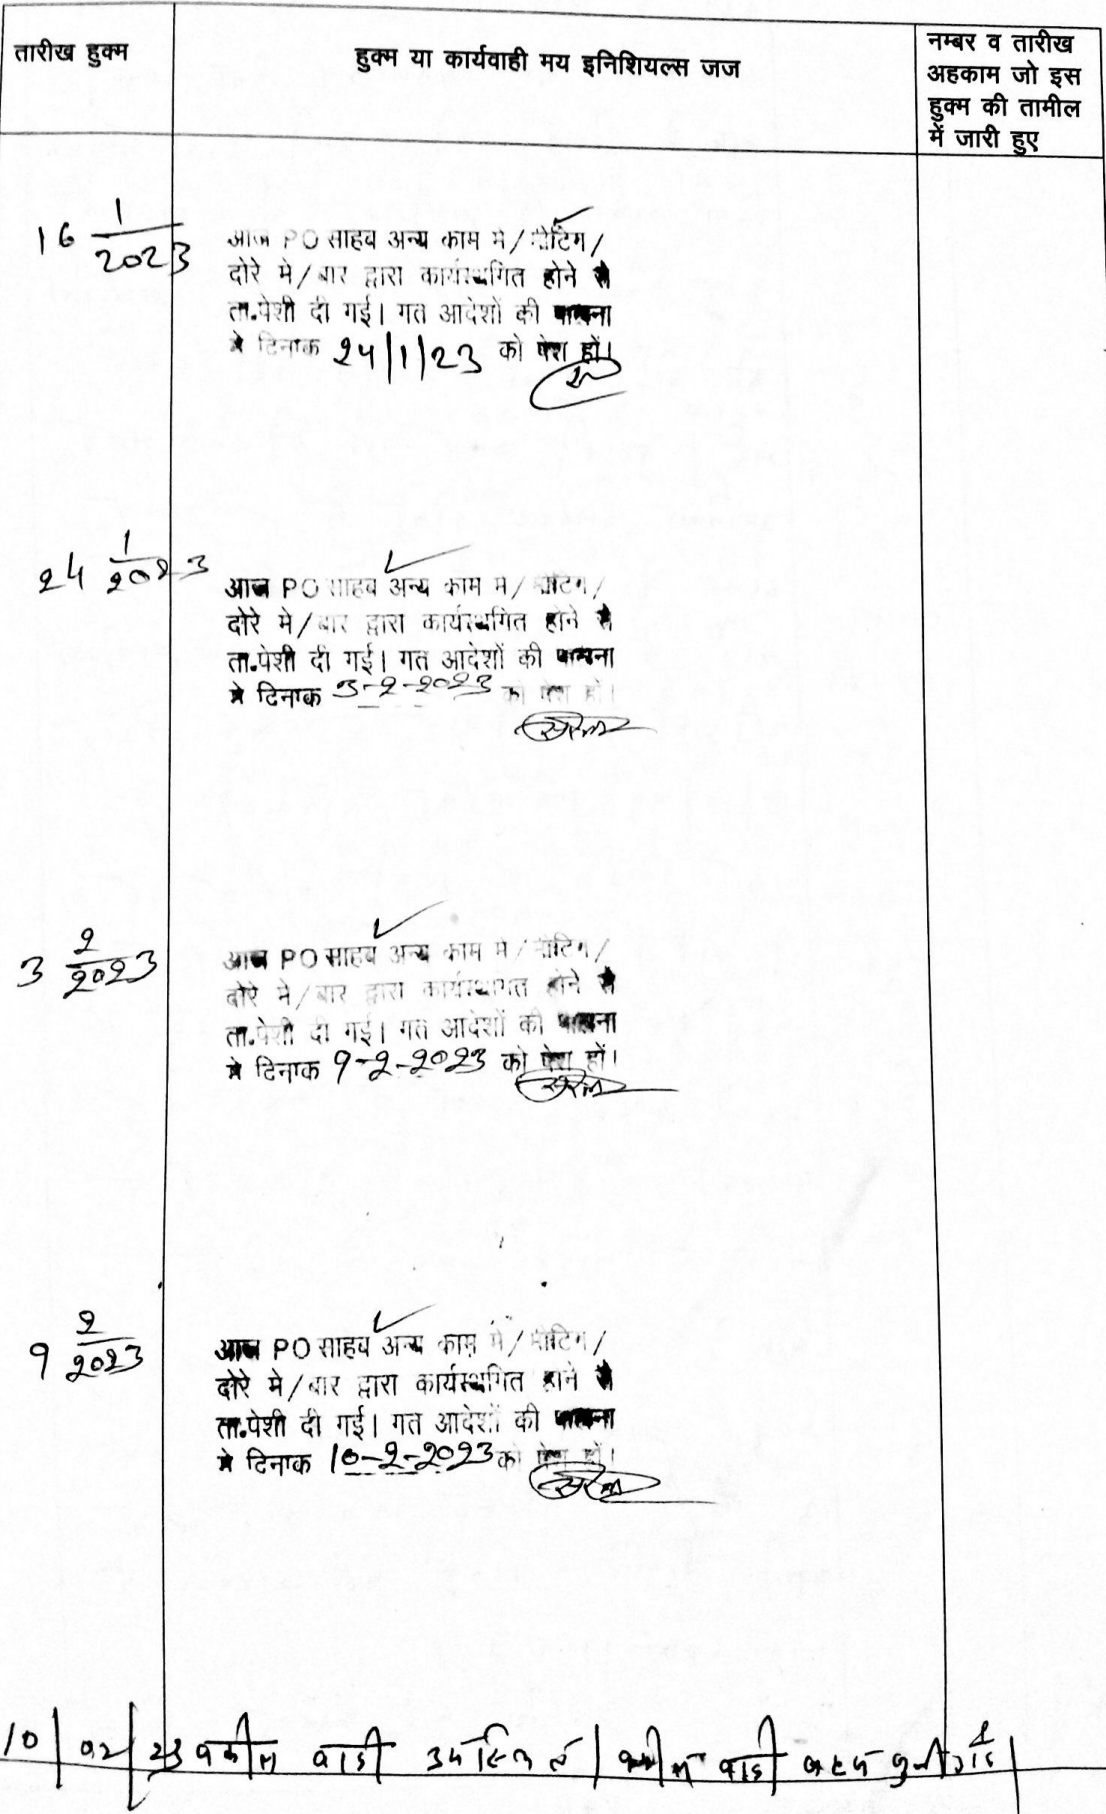 तारीख हुक्म
हुक्म या कार्यवाही मय इनिशियल्स जज
नम्बर व तारीख
अहकाम जो इस
हुक्म की तामील
में जारी हुए
16 1/2023
आज PO साहब अन्य काम मे/मीटिंग/
दोरे मे/बार द्वारा कार्यस्थगित होने से
ता.पेशी दी गई। गत आदेशों की पालना
मे दिनाक 24/1/23 को पेश हों।
24 1/2023
आज PO साहब अन्य काम मे/मीटिंग/
दोरे मे/बार द्वारा कार्यस्थगित होने से
ता.पेशी दी गई। गत आदेशों की पालना
मे दिनाक 3-2-2023 को पेश हों।
3 2/2023
आज PO साहब अन्य काम मे/मीटिंग/
दोरे मे/बार द्वारा कार्यस्थगित होने से
ता.पेशी दी गई। गत आदेशों की पालना
मे दिनाक 9-2-2023 को पेश हों।
9 2/2023
आज PO साहब अन्य काम मे/मीटिंग/
दोरे मे/बार द्वारा कार्यस्थगित होने से
ता.पेशी दी गई। गत आदेशों की पालना
मे दिनाक 10-2-2023 को पेश हों।
10/02/23 वकील वादी उपस्थित । वकील वादी बहस सुनी गई।